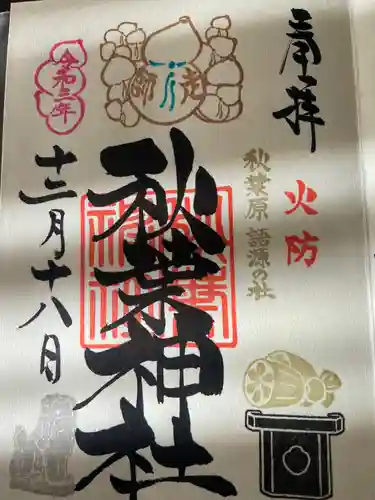 奉拝
火防
秋葉原 語源の社
秋葉神社
令和三年
十二月十八日